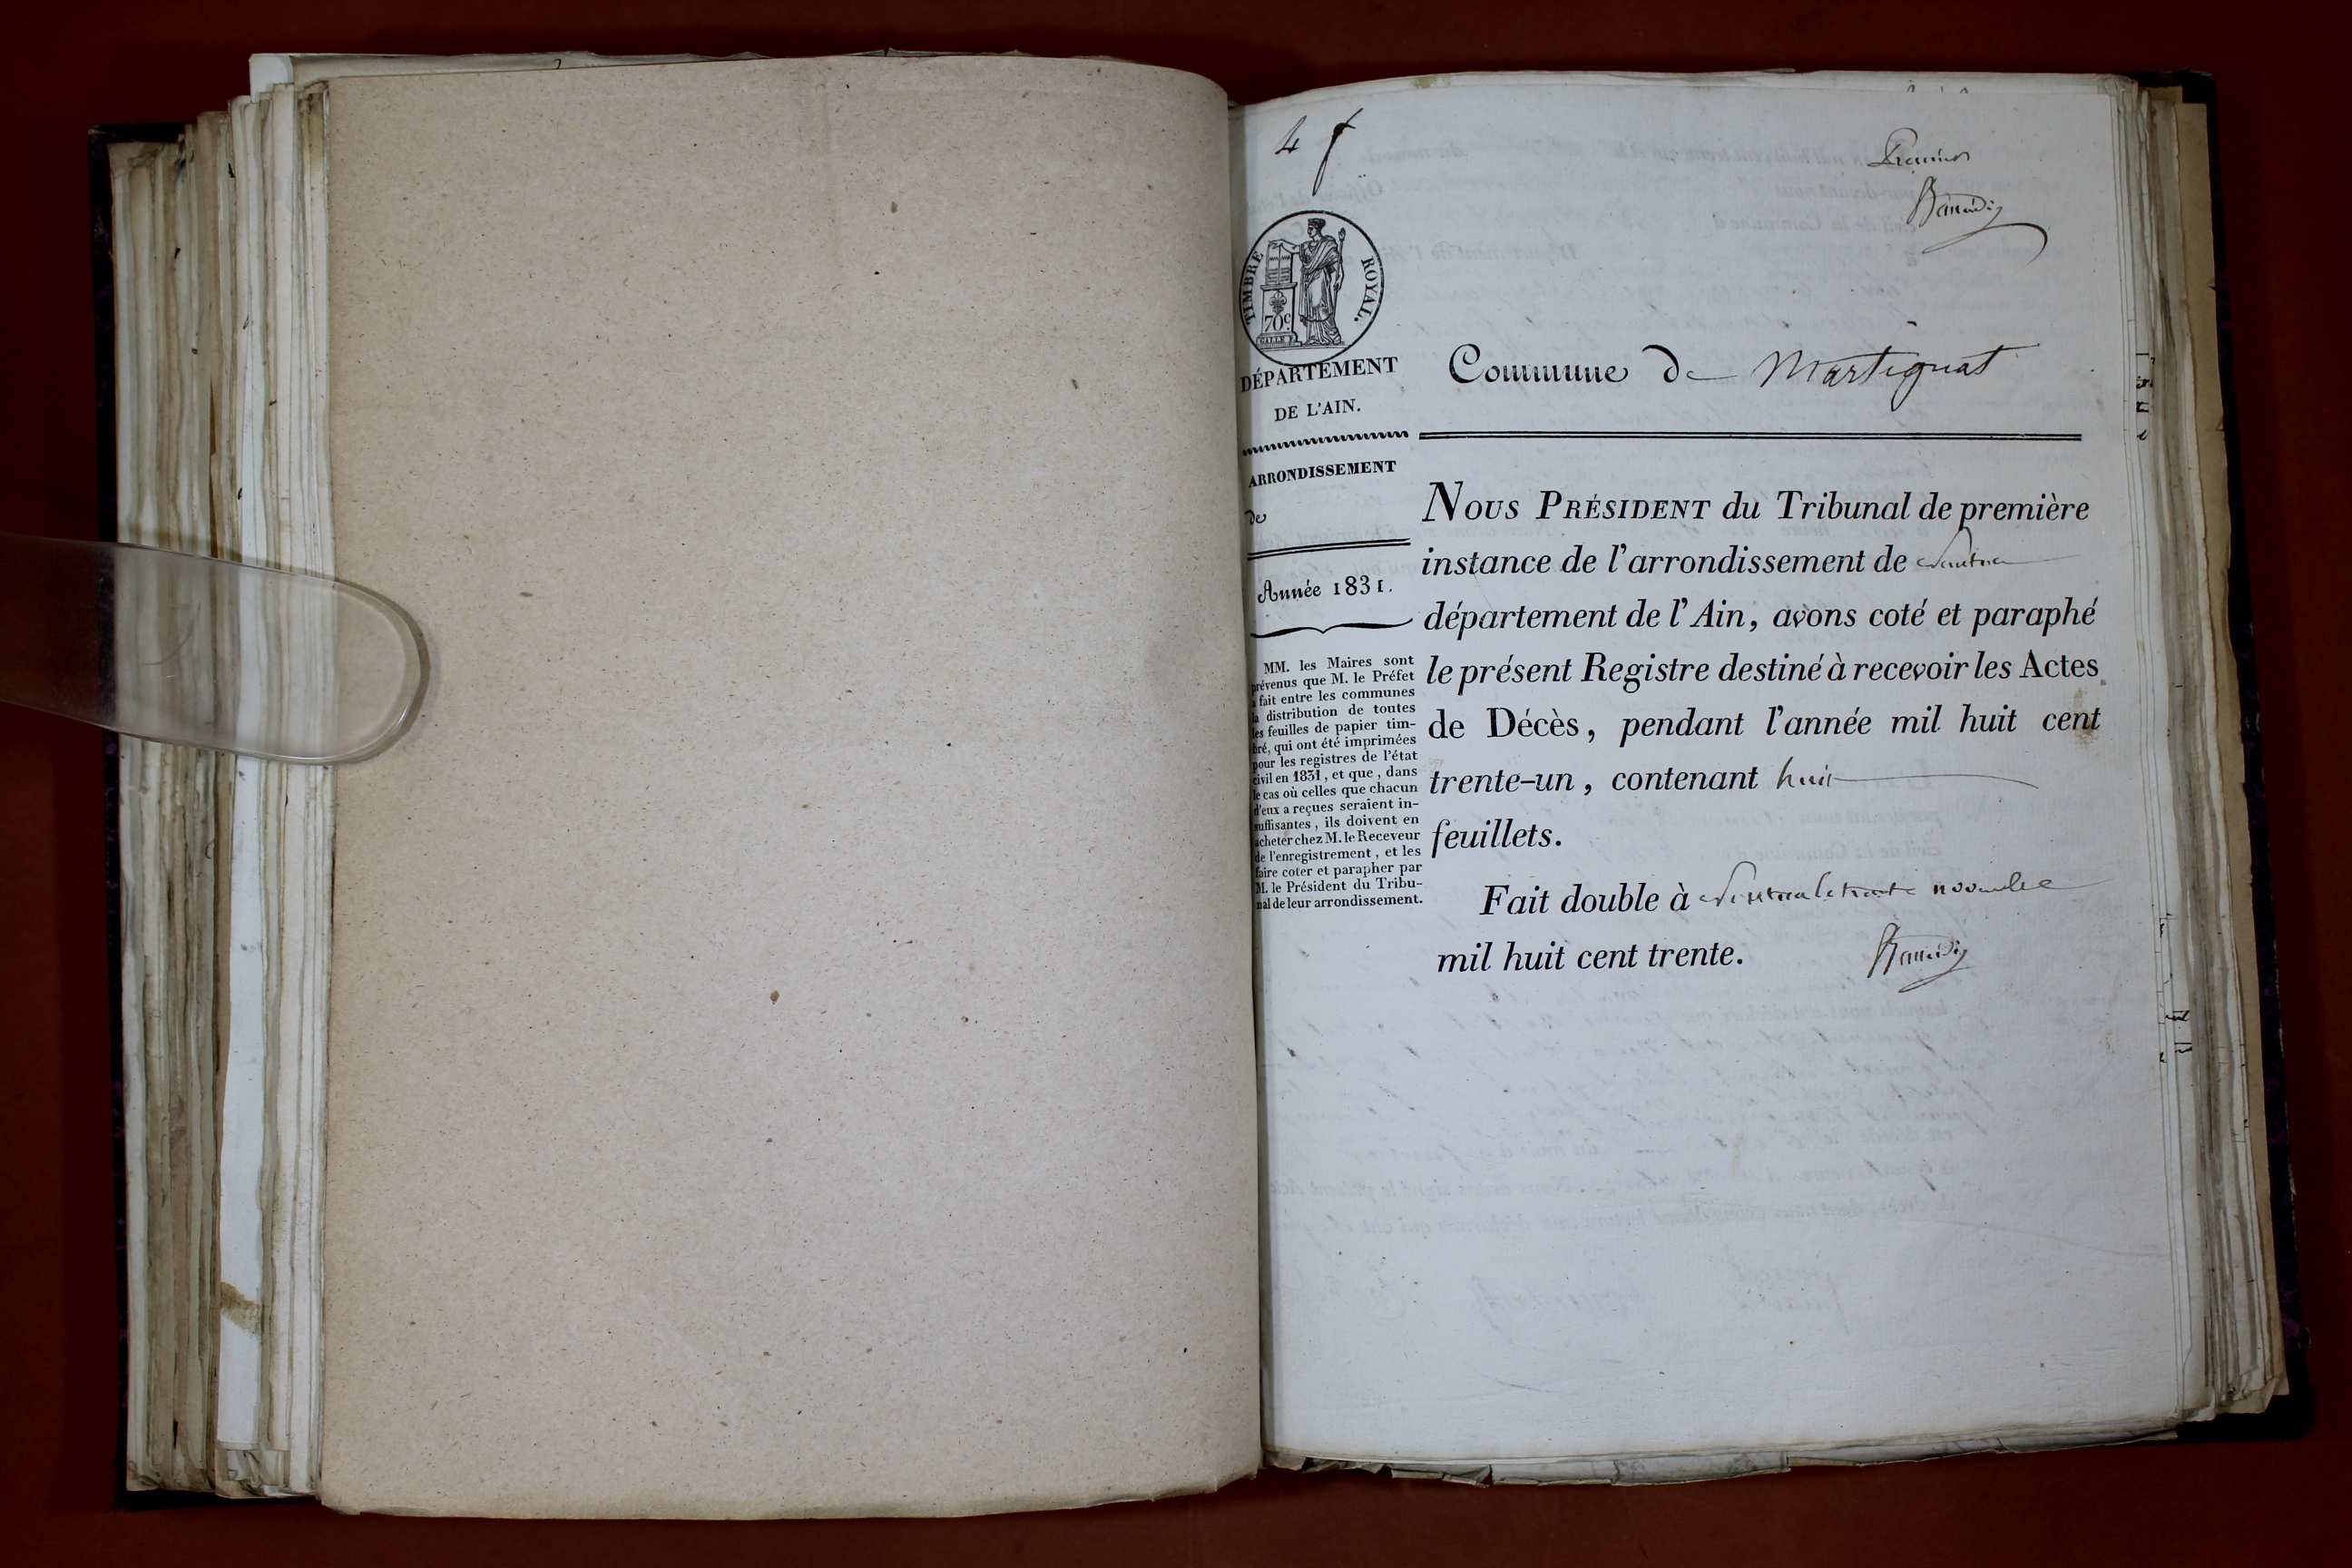 4 f
Premier
TIMBRE ROYAL.
70c
DÉPARTEMENT
DE L'AIN.
Commune de Martignat
ARRONDISSEMENT
de
Année 1831.
MM. les Maires sont
prévenus que M. le Préfet
a fait entre les communes
la distribution de toutes
les feuilles de papier tim-
bré, qui ont été imprimées
pour les registres de l'état
civil en 1831, et que, dans
le cas où celles que chacun
d'eux a reçues seraient in-
suffisantes, ils doivent en
acheter chez M. le Receveur
de l'enregistrement, et les
faire coter et parapher par
M. le Président du Tribu-
nal de leur arrondissement.
NOUS PRÉSIDENT du Tribunal de première
instance de l'arrondissement de Nantua
département de l'Ain, avons coté et paraphé
le présent Registre destiné à recevoir les Actes
de Décès, pendant l'année mil huit cent
trente-un, contenant huit
feuillets.
Fait double à Nantua le trente novembre
mil huit cent trente.